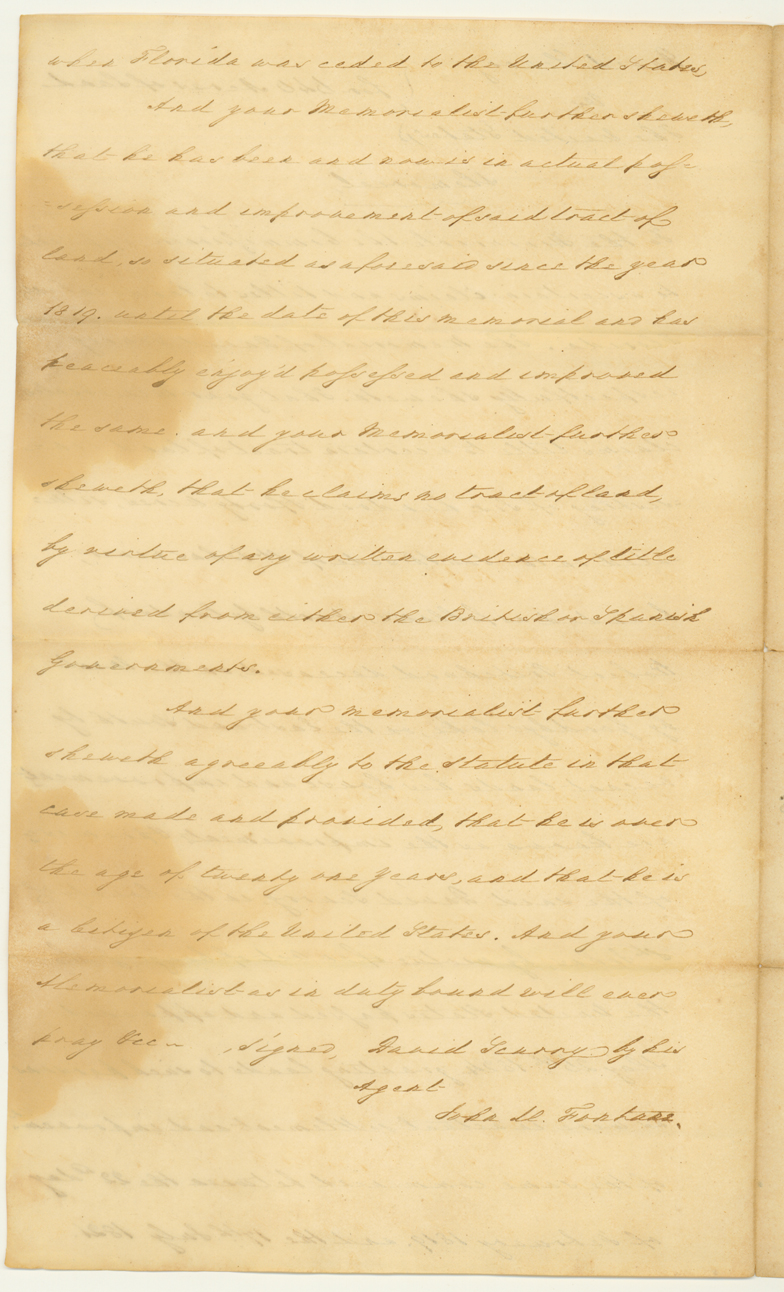 when Florida was ceded to the United States,
And your Memorialist further sheweth,
that he has been and now is in actual pos=
=session and improvement of said tract of
land, so situated as aforesaid since the year
1819. until the date of this memorial and has
peaceably enjoy'd possessed and improved
the same. and your Memorialist further
sheweth, that he claims no tract of land,
by virtue of any written evidence of title
derived from either the British or Spanish
Governments.
And your memorialist further
sheweth agreeably to the Statute in that
case made and provided, that he is over
the age of twenty one years, and that he is
a Citizen of the United States. And your
Memorialist as in duty bound will ever
pray &cc signed, David Scurry by his
Agent
John M.